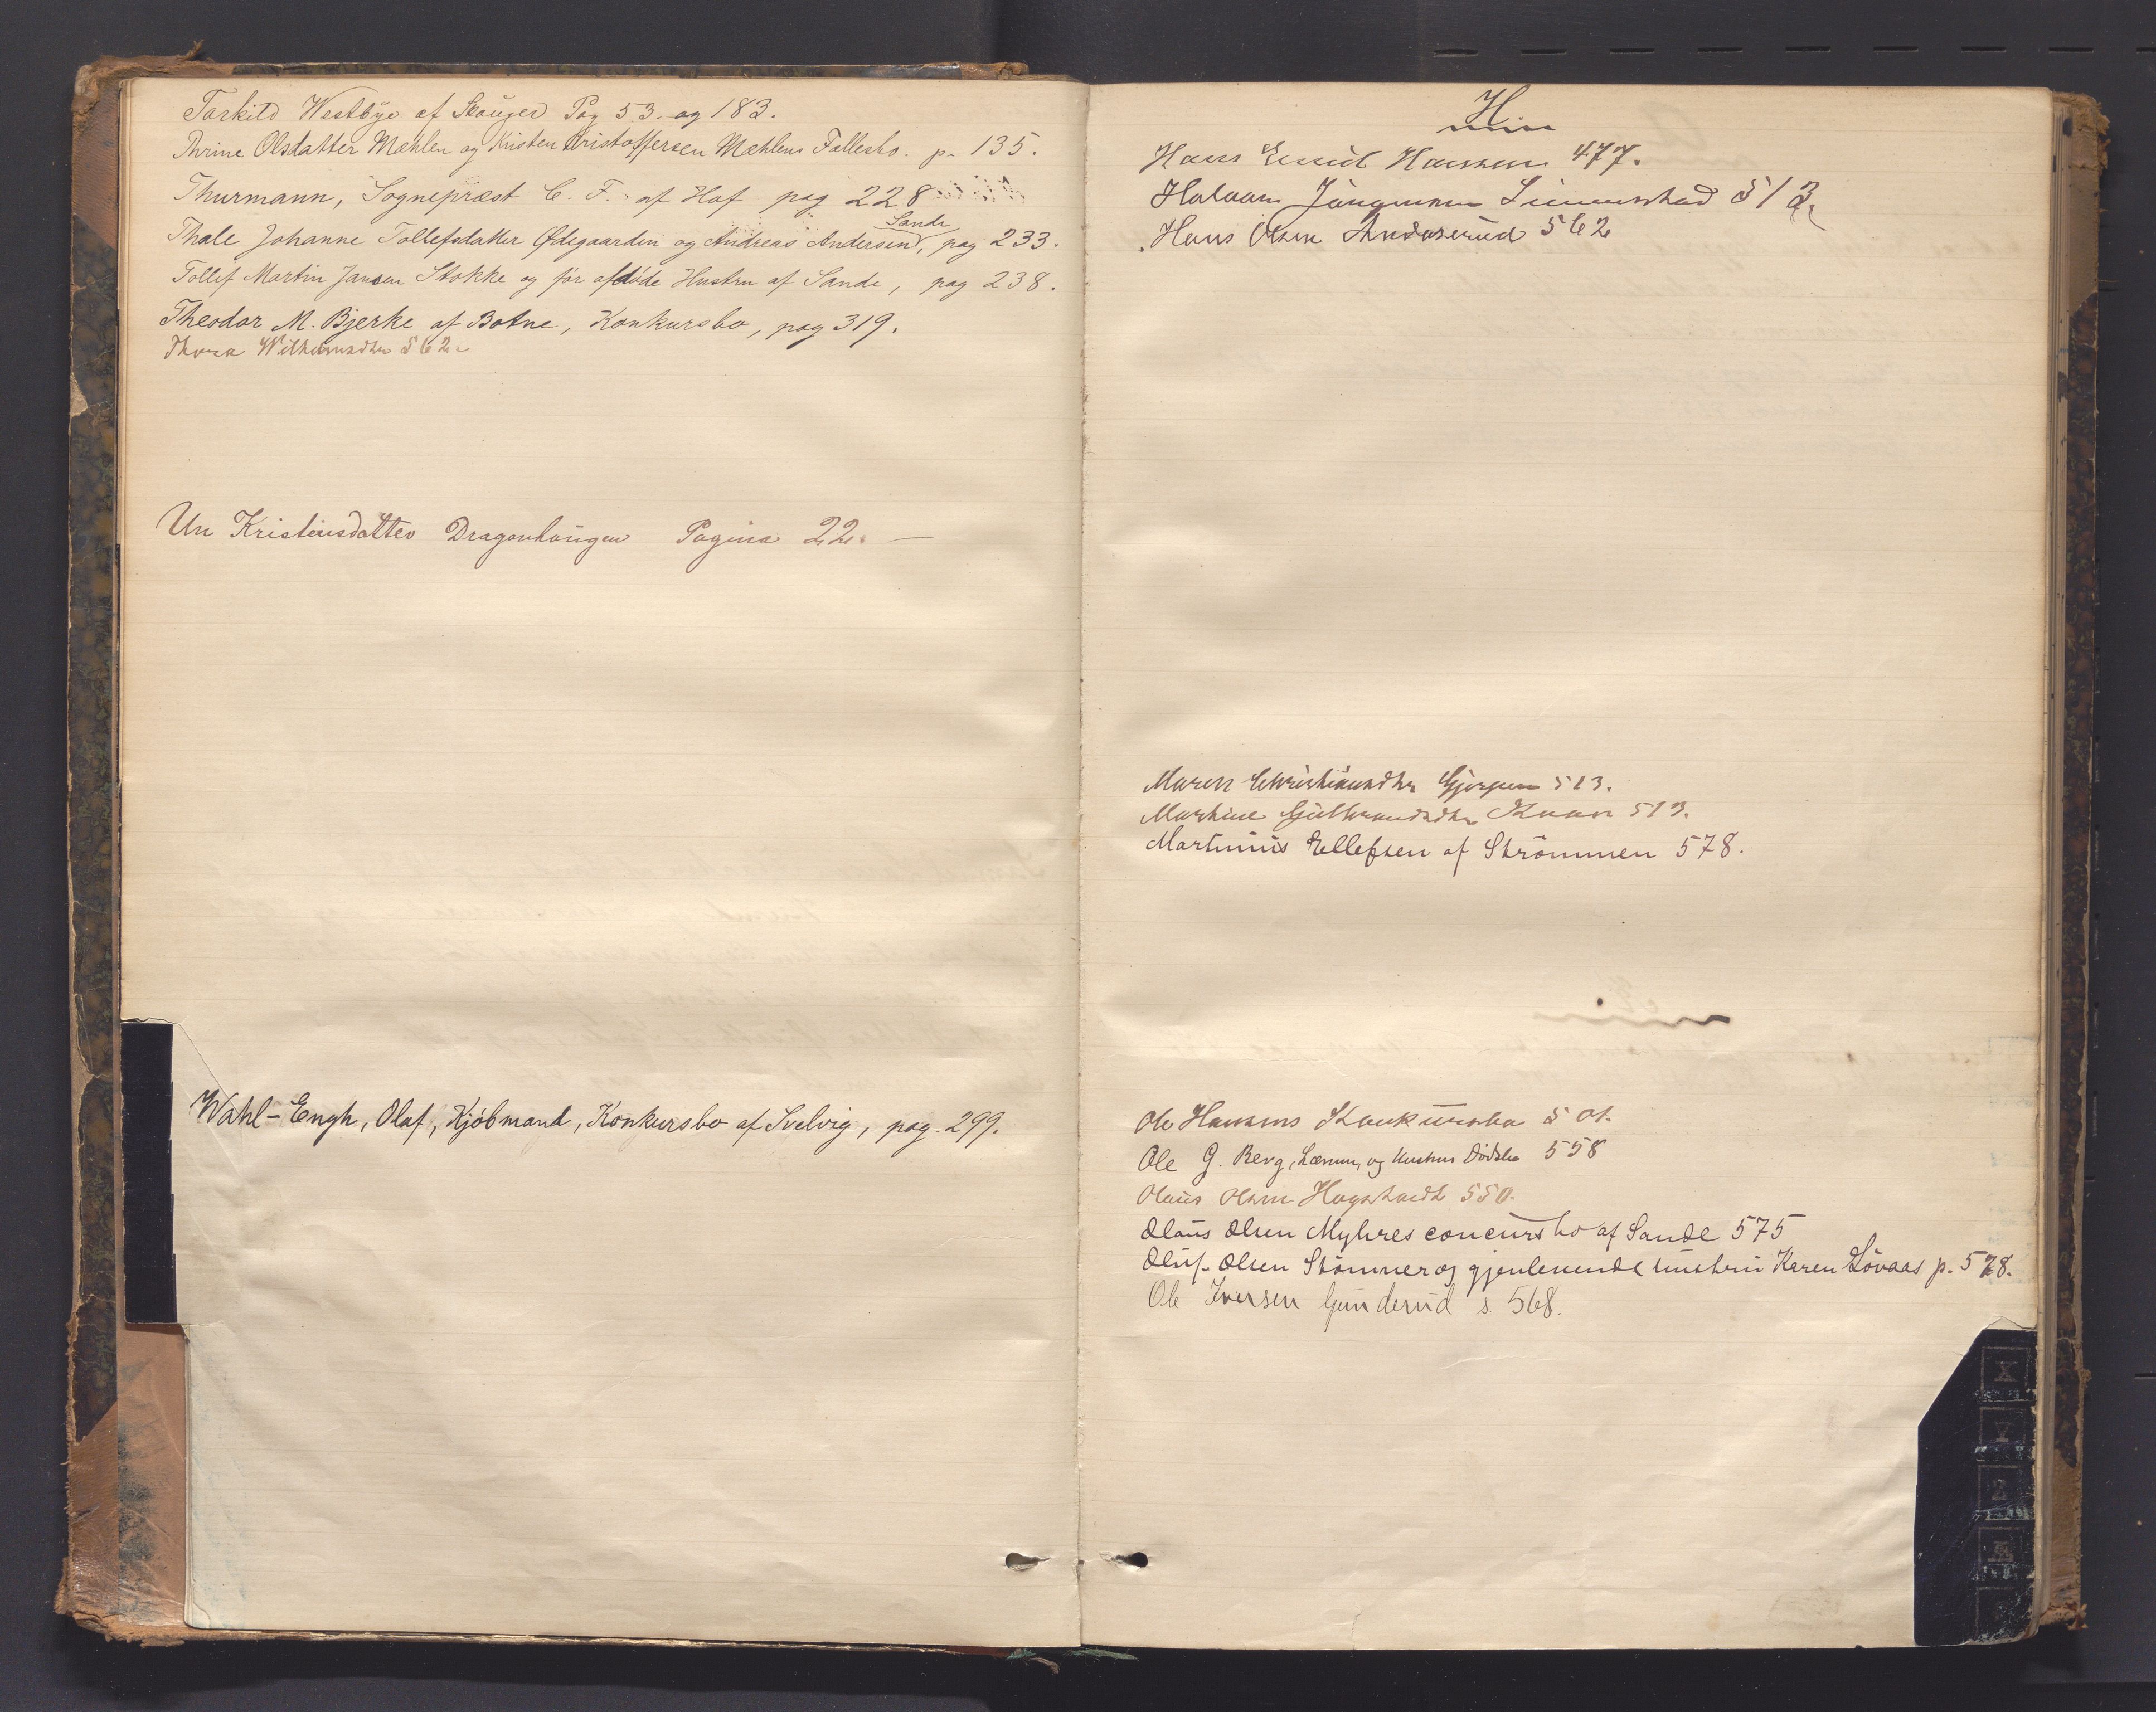 Tarkild Westbye af Skauger Pag 53. og 183.
Thrine Olsdatter Mæhlen og Kristen Kristoffersen Mæhlens Fællesbo. p. 135.
Thurmann, Sognepræst C. F. af Hof pag 228
Sande
Thale Johanne Tollefsdatter Ødegaarden og Andreas Andersen, pag 233.
Tollef Martin Jansen Stokke og før afdøde Hustru af Sande, pag 238.
Theodor M. Bjerke af Botne, Konkursbo, pag 319.
Thora 562
Un Kristensdatter Draganhaugen Pagina 22. —
Wahl-Engh, Olaf, Kjöbmand, Konkursbo af Svelvig, pag. 299.
H
Hans Emil Hansen 477.
Halvan Jörgensen 513
Hans Olsen 562
Maren 513.
Martine Gulbrandsdtr 513.
Martinius Ellefsen af Strömmen 578.
Ole Hansens Konkursbo 501.
Ole G. Berg, og Hustrus Dödsbo 558
Olaus Olsen 550.
Olaus Olsen Myhres concursbo af Sande 575
Oluf Olsen Stömner og gjenlevende hustru Karen Lövaas p. 578.
Ole Iversen Gunderud s. 568.
X
Y
Z